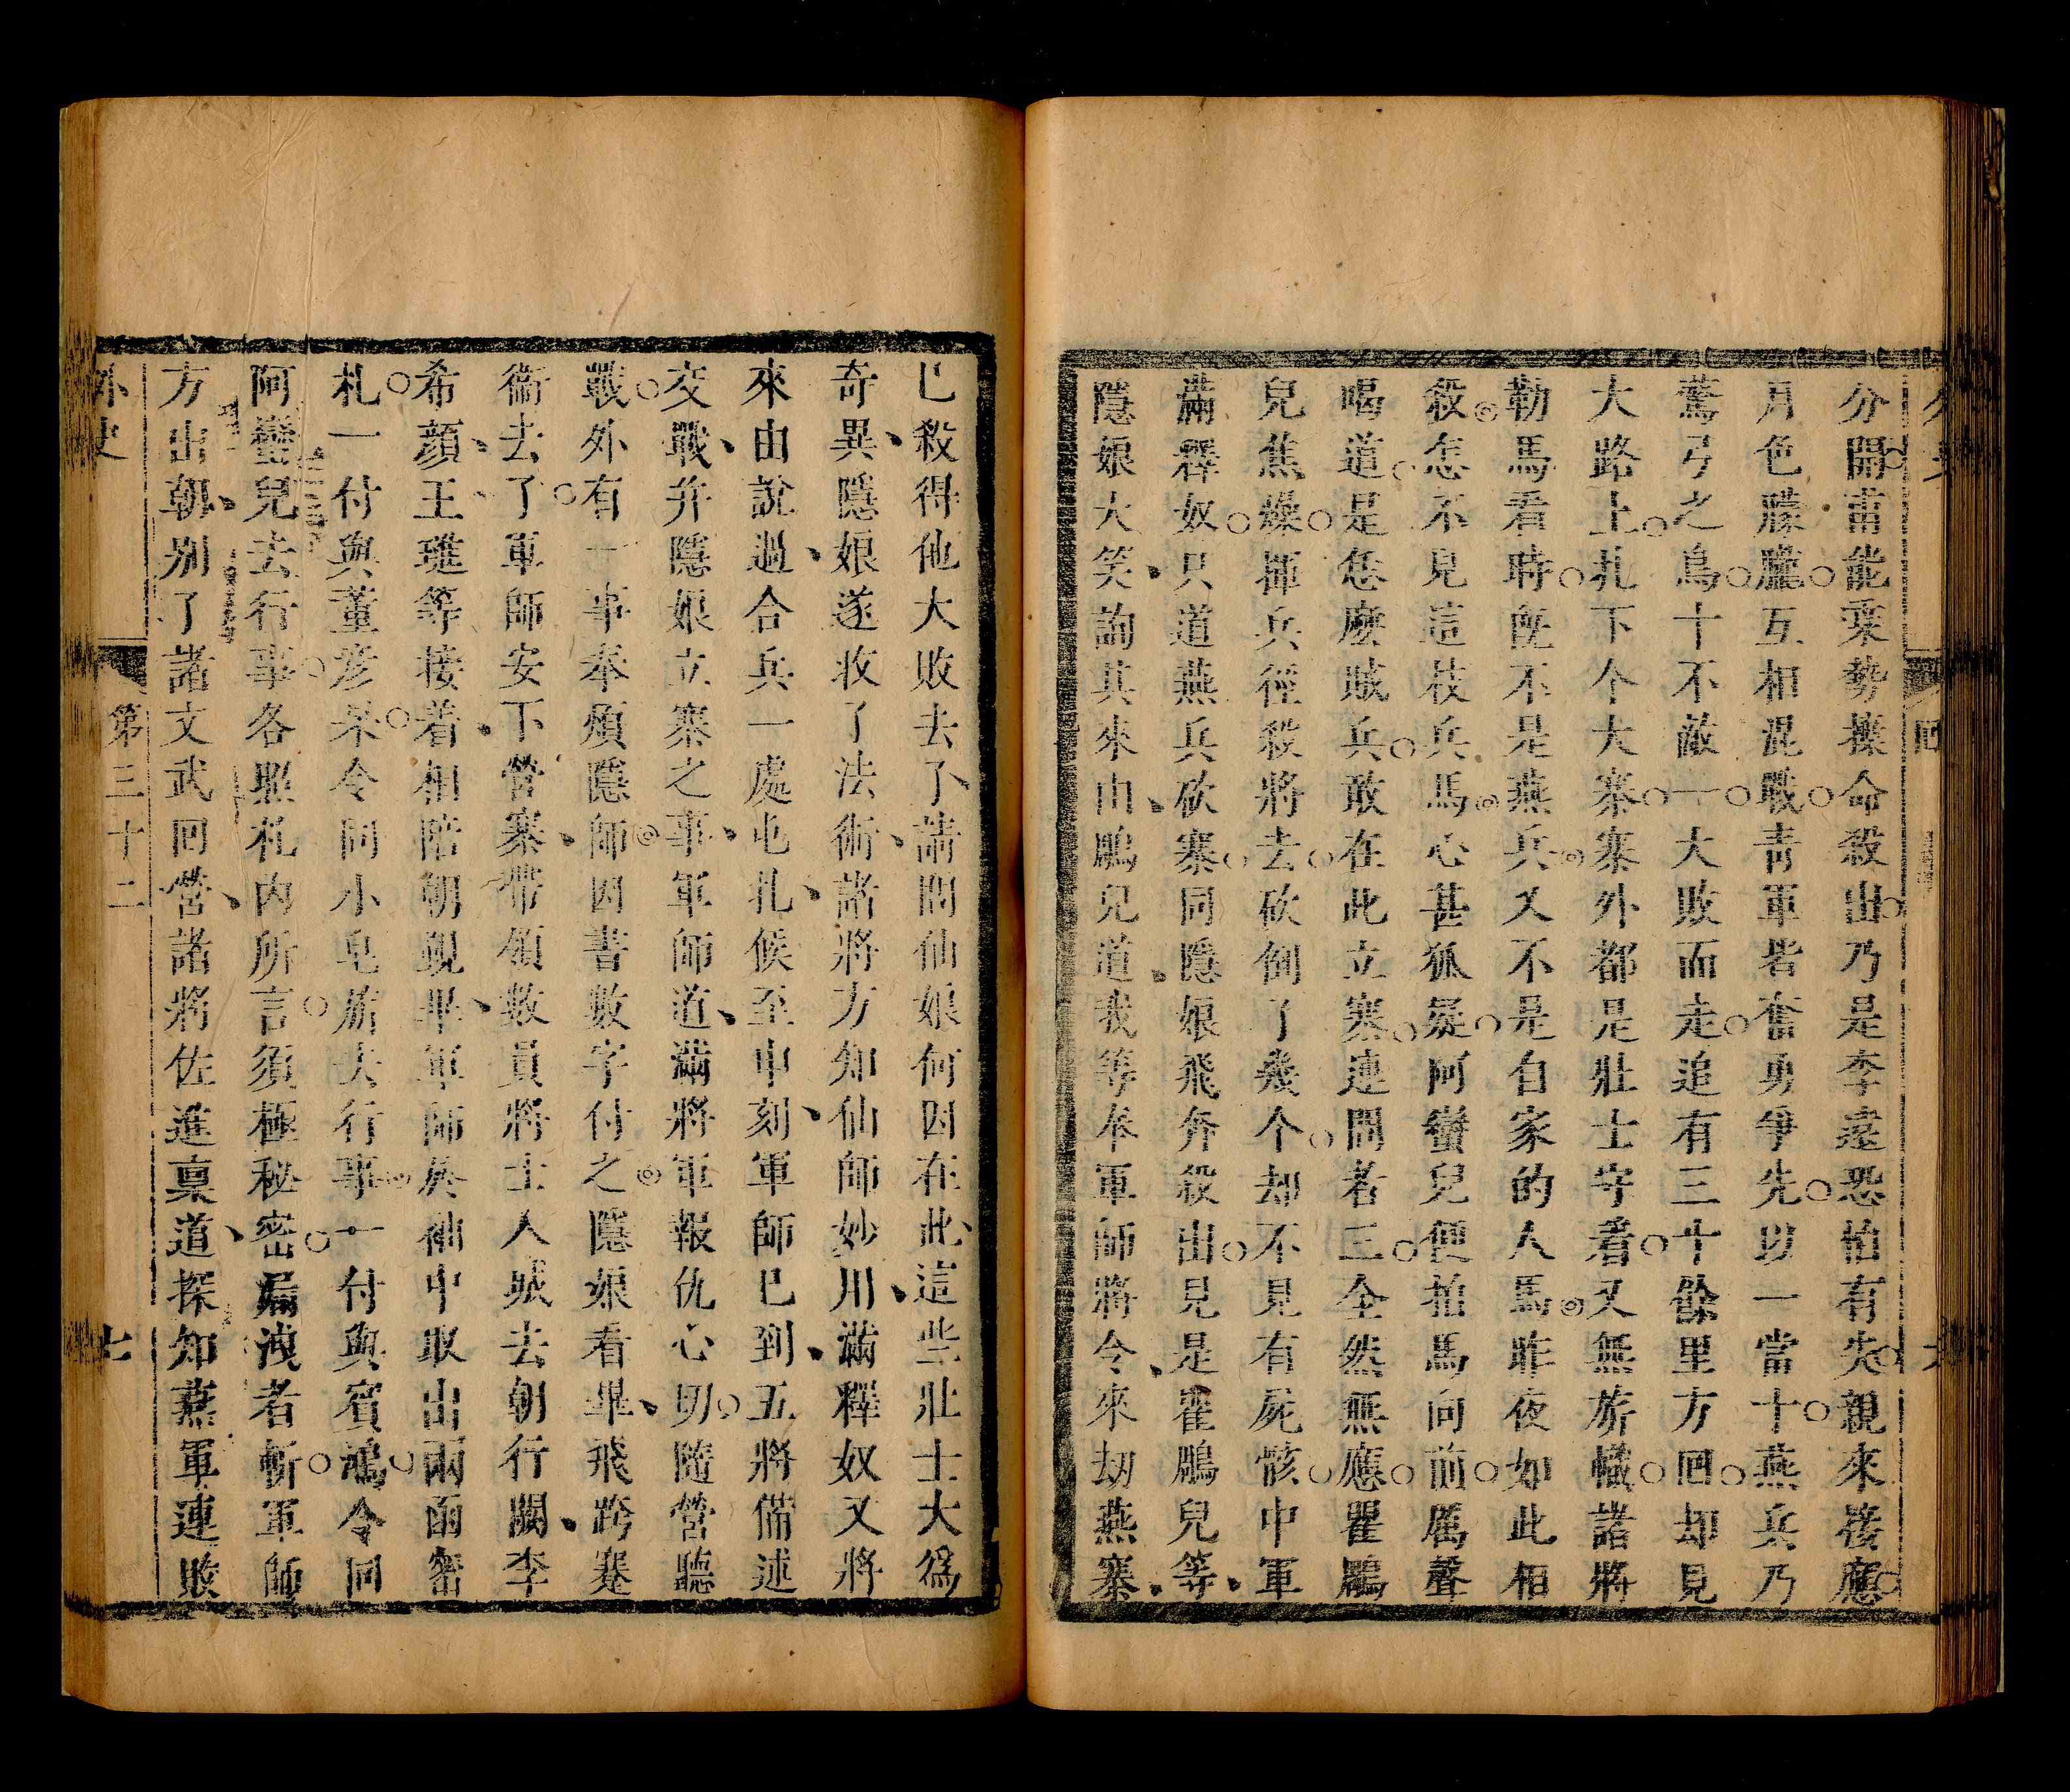 分開當能乘勢操命殺出乃是李遠恐怕有失親來接應
月色朦朧互相混戰靑軍皆奮勇爭先以一當十燕兵乃
驚弓之鳥十不敵一大敗而走追有三十餘里方囘却見
大路上扎下个大寨寨外都是壯士守着又無旂幟諸將
勒馬看時旣不是燕兵又不是自家的人馬昨夜如此相
殺怎不見這枝兵馬心甚狐疑阿蠻兒便拍馬向前厲聲
喝道是恁麽賊兵敢在此立寨連問者三全然無應瞿鵰
兒焦燥揮兵徑殺將去砍倒了幾个却不見有屍骸中軍
滿釋奴只道燕兵砍寨同隱娘飛奔殺出見是瞿鵰兒等
隱娘大笑詢其來由鵰兒道我等奉軍師將令來刼燕寨
已殺得他大敗去了請問仙娘何因在此這些壯士大爲
奇異隱娘遂收了法術諸將方知仙師妙用滿釋奴又將
來由說過合兵一處屯扎候至申刻軍師已到五將備述
交戰并隱娘立寨之事軍師道滿將軍報仇心切隨營聽
戰外有一事奉煩隱師因書數字付之隱娘看畢飛跨蹇
衞去了軍師安下營寨帶領數員將士入城去朝行闕李
希顏王璡等接着相陪朝覲畢軍師於袖中取出兩函密
札一付與董彦杲令同小皂旂去行事一付與賓鴻令同
阿蠻兒去行事各照札內所言須極秘密漏洩者斬軍師
方出朝別了諸文武回營諸將佐進稟道探知燕軍連敗
外史
第三十二
七